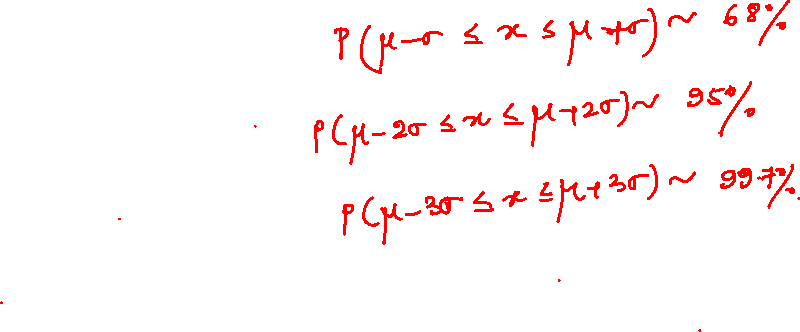 P(μ-σ ≤ x ≤ μ+σ) ~ 68%
P(μ-2σ ≤ x ≤ μ+2σ) ~ 95%
P(μ-3σ ≤ x ≤ μ+3σ) ~ 99.7%